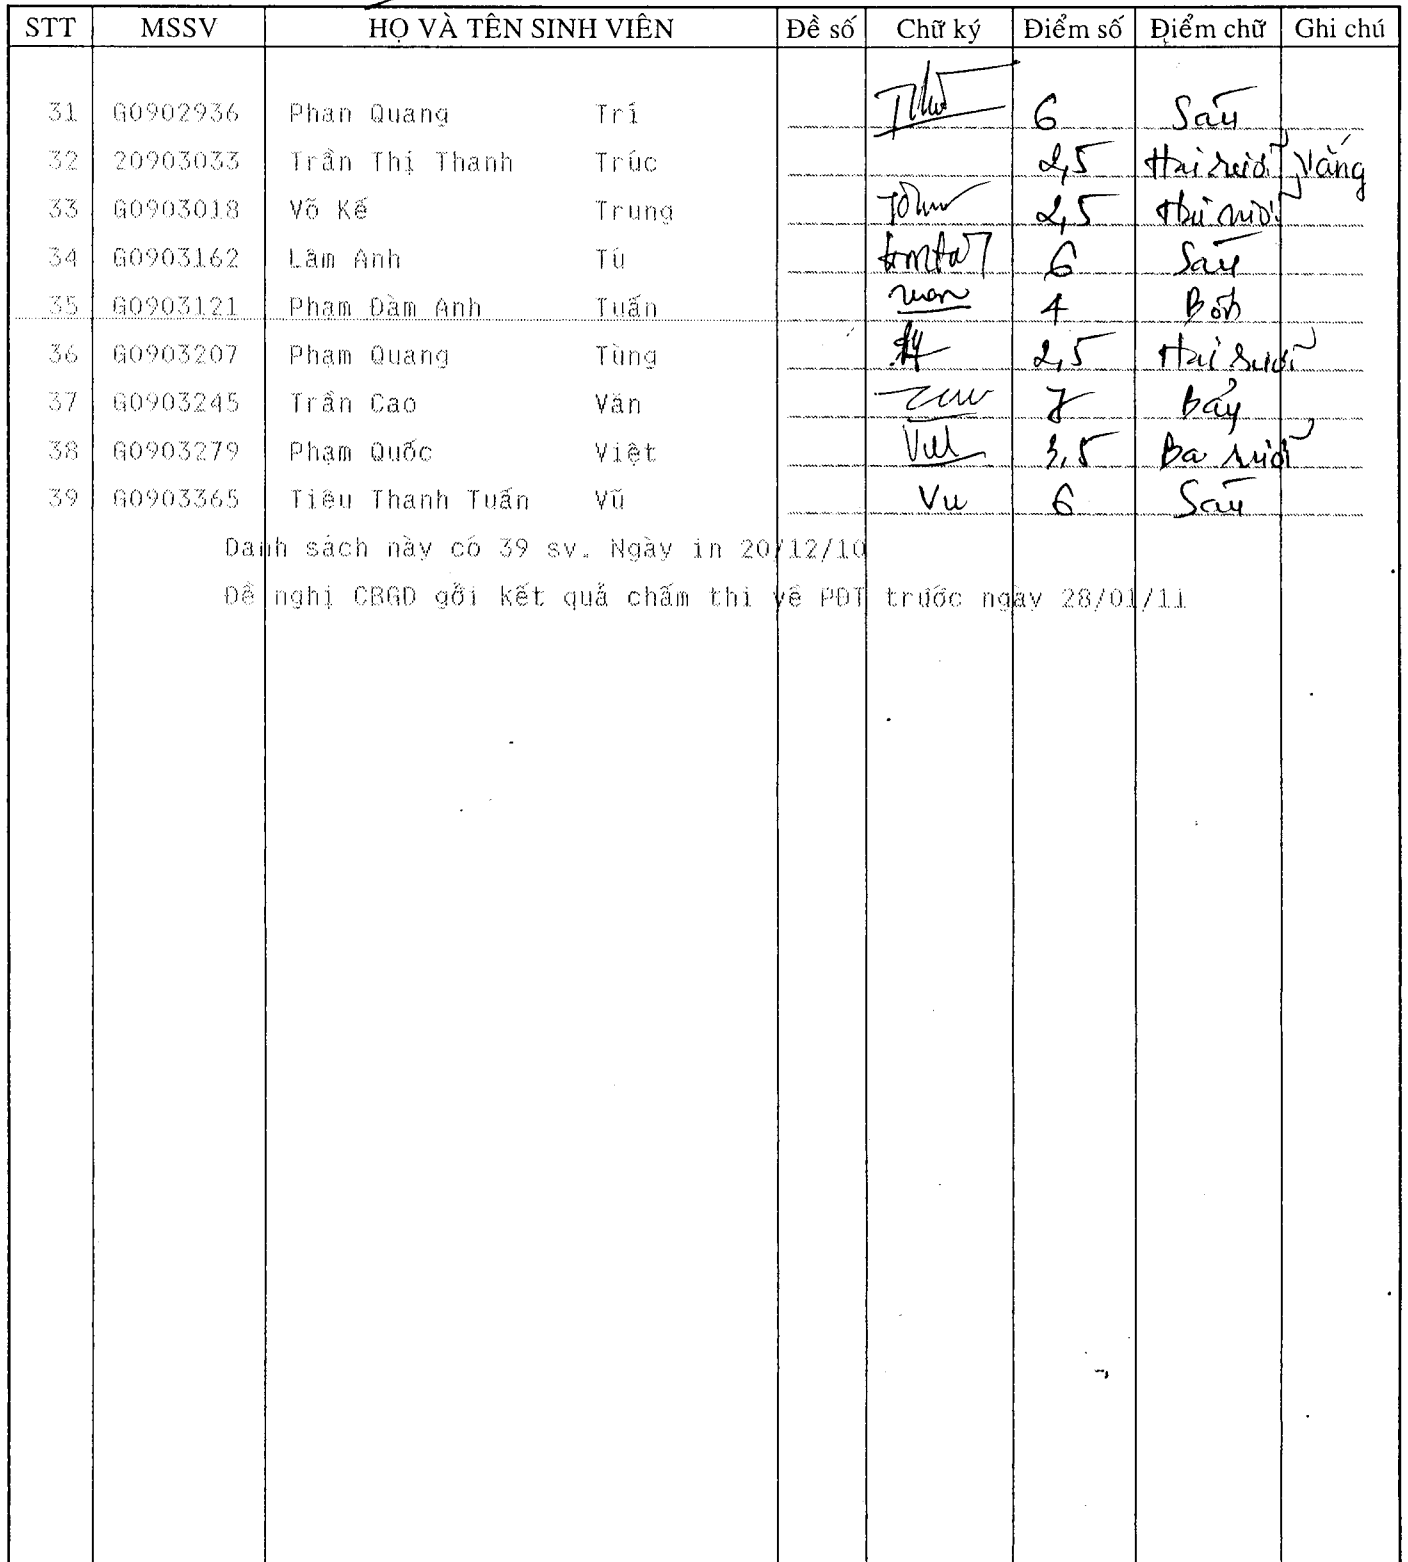 STT MSSV HỌ VÀ TÊN SINH VIÊN Đề số Chữ ký Điểm số Điểm chữ Ghi chú
31 G0902936 Phan Quang Trí 6 Sáu
32 20903033 Trần Thị Thanh Trúc 2,5 Hai rưỡi Vắng
33 G0903018 Võ Kế Trung 2,5 Hai rưỡi
34 G0903162 Lâm Anh Tú 6 Sáu
35 G0903121 Phạm Đàm Anh Tuấn 4 Bốn
36 G0903207 Phạm Quang Tùng 2,5 Hai rưỡi
37 G0903245 Trần Cao Vân 7 Bảy
38 G0903279 Phạm Quốc Việt 3,5 Ba rưỡi
39 G0903365 Tiêu Thanh Tuấn Vũ Vu 6 Sáu
Danh sách này có 39 sv. Ngày in 20/12/10
Đề nghị CBGD gởi kết quả chấm thi về PĐT trước ngày 28/01/11